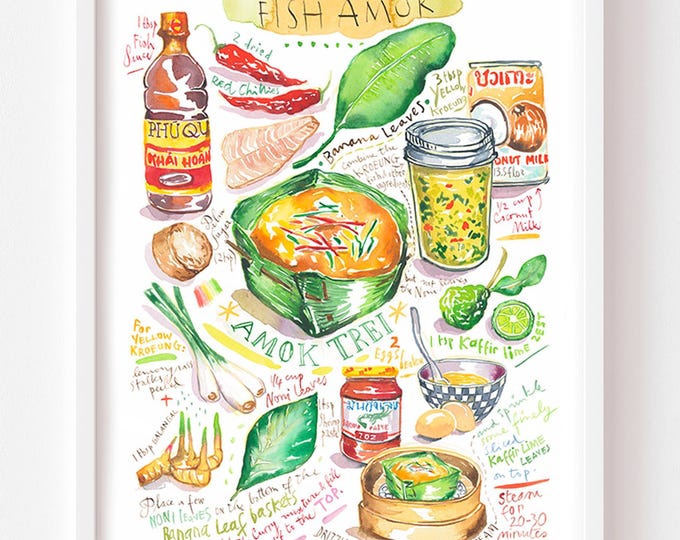 FISH AMOK
1 tbsp
Fish
Sauce
2 dried
Red Chillies
Banana Leaves
3 tbsp
YELLOW
KROEUNG
ชาวเกาะ
ONUT MILK
13.5 floz
PHÚ QU
KHẢI HOÀN
combine the
KROEUNG
ingredients
Palm
Sugar
(2 tsp)
1/2 cup
Coconut
Milk
but not leaves
the Noni
AMOK TREI
For
YELLOW
KROEUNG:
lemongrass
stalks
peeled
+
1/4 cup
Noni Leaves
2
Eggs
beaten
1 tsp Kaffir lime ZEST
1 tsp
Shrimp
Paste
702
1 tbsp GALANGAL
and sprinkle
some finely
sliced
Kaffir LIME
LEAVES
on top.
Place a few
NONI LEAVES on the bottom of the
Banana Leaf baskets
curry mixture & fill
to the TOP.
Steam
for
20-30
minutes